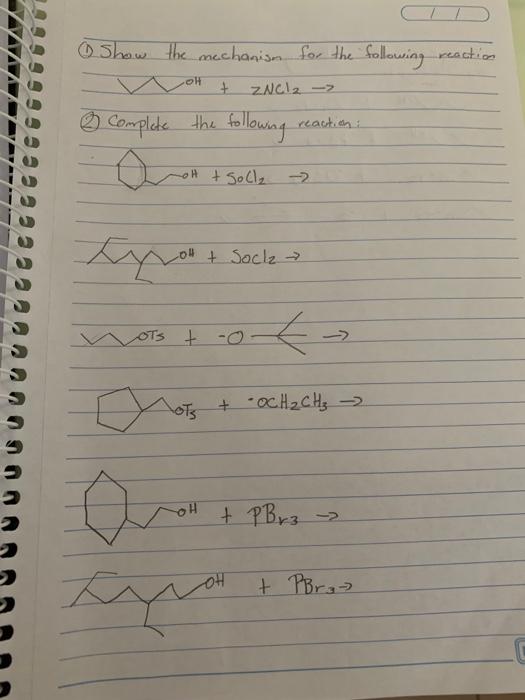 ① Show the mechanism for the following reaction
OH + ZNCl2 →
② Complete the following reaction:
OH + SoCl2 →
OH + Socl2 →
OTs + -O →
OTs + -OCH2CH3 →
OH + PBr3 →
OH + PBr3 →